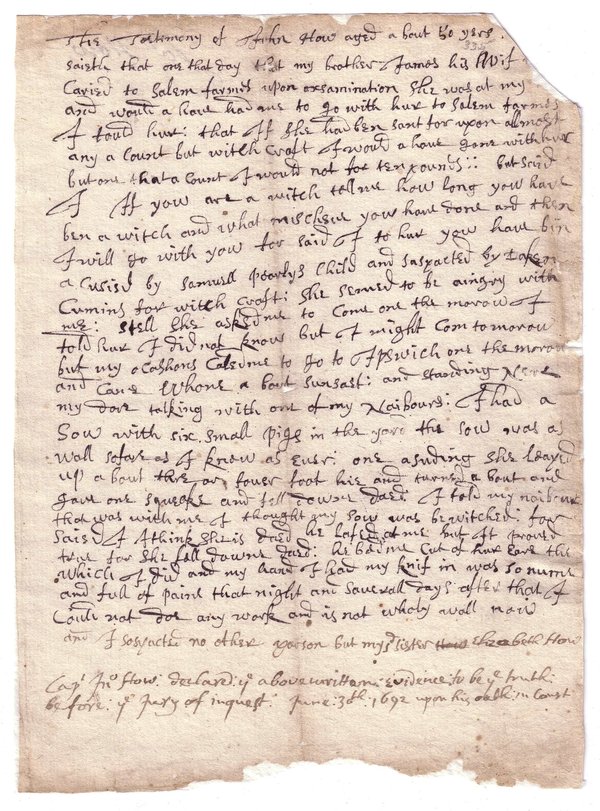 The Testimony of John How aged a bout 50 yers
saieth that one that day that my brother James his Wife was
Caried to Salem farmes upon exsamination She was at my
and would a have had me to go with hur to Salem farmes
I tould hur: that If She had ben sant for upon allmost
any a Count but witch Craft I would a have gone with hur
but one that a Count I would not for ten pounds:: but said
I If you are a witch tell me how long you have
ben a witch and what mischeve you have done and then
I will go with you for said I to hur you have bin
a Cusied by Samuell Pearlys Child and suspacted by
Cumins for witch Craft: She semed to be aingry with
me: stell She asked me to Come one the morow I
told hur I did not know but I might Com to morow
but my ocashons Caled me to go to Ipswich one the morow
and Came Whome a bout sunsast: and standing Nere
my dore talking with one of my Naibours: I had a
Sow with six small pigs in the yard the sow was as
wall sofar as I know as ever: one a suding she leaped
up a bout thre or fouer foot hie and turned a bout and
gave one squeake and fell downe daed: I told my naibour
that was with me I thought my sow was bewitched: for
said I I think She is daed he lafed at me but It proved
true for she fell downe daed: he bed me cut of hur eare the
which I did and my hand I had my knif in was so numb
and full of paine that night and sauerall days after that I
Could not doe any work and is not wholy wall now
and I sospacted no other parson but my sd sister Elizabeth How
Capt Jno How: declared: ye above written: evidence: to be ye truth:
before: ye Jury of inquest: June: 30th: 1692 upon his oath: in Court